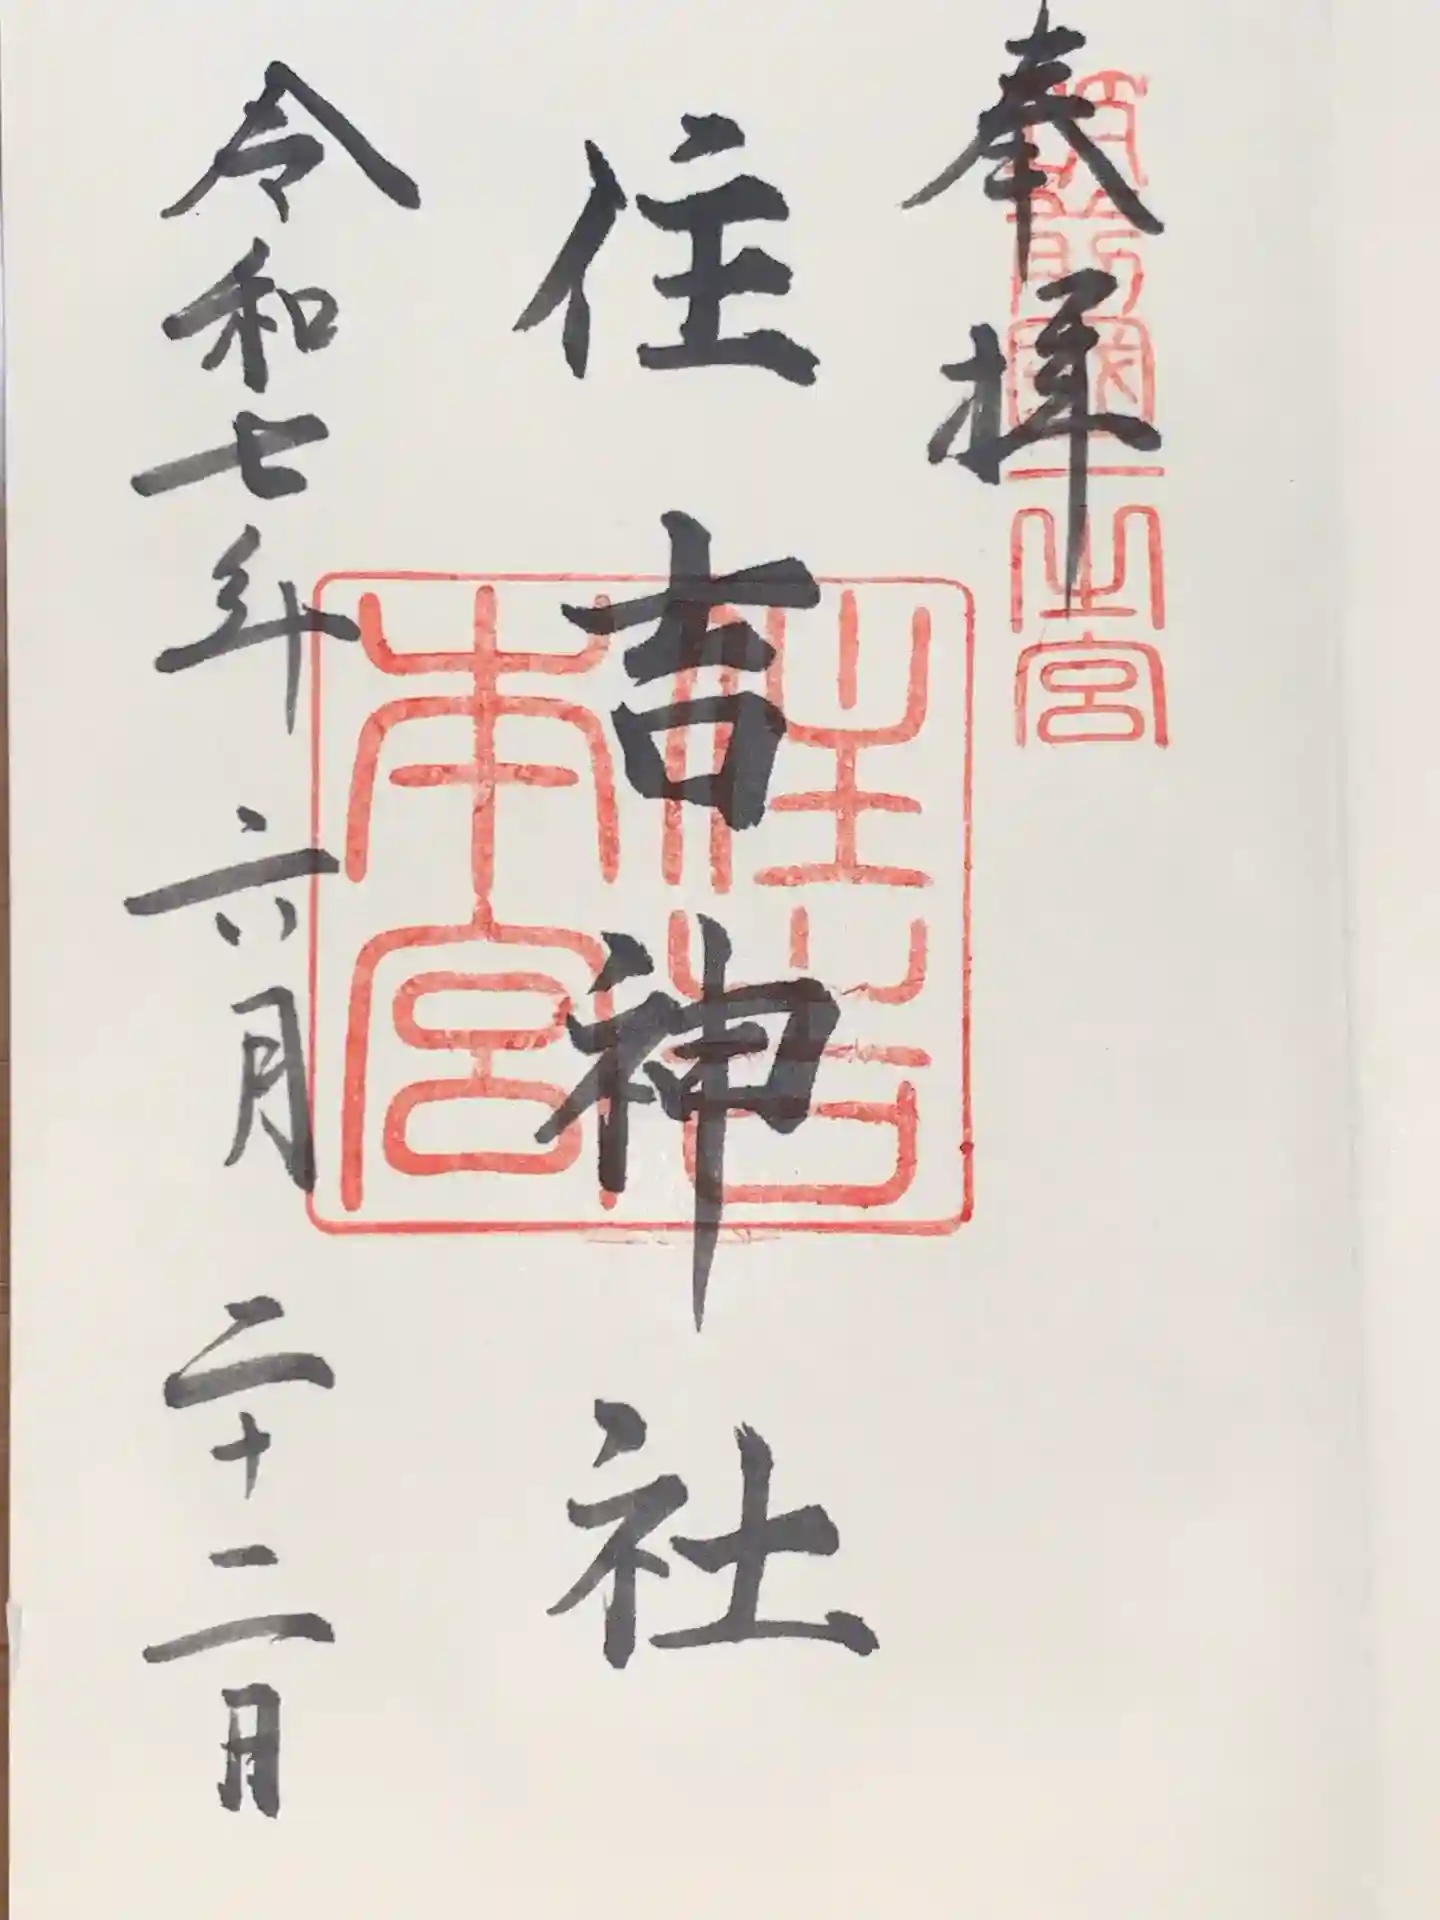 奉拝
筑前國一之宮
住吉神社
住吉本宮
令和七年 六月 二十二日